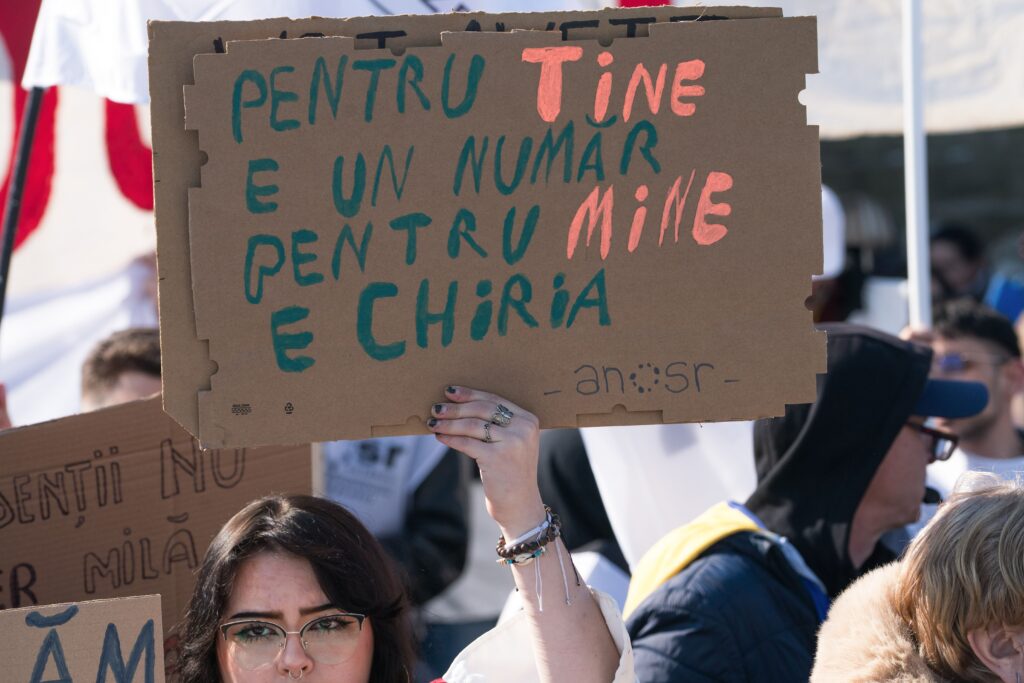 PENTRU TINE
E UN NUMĂR
PENTRU MINE
E CHIRIA
-anosr-
NU
MILĂ
ĂM